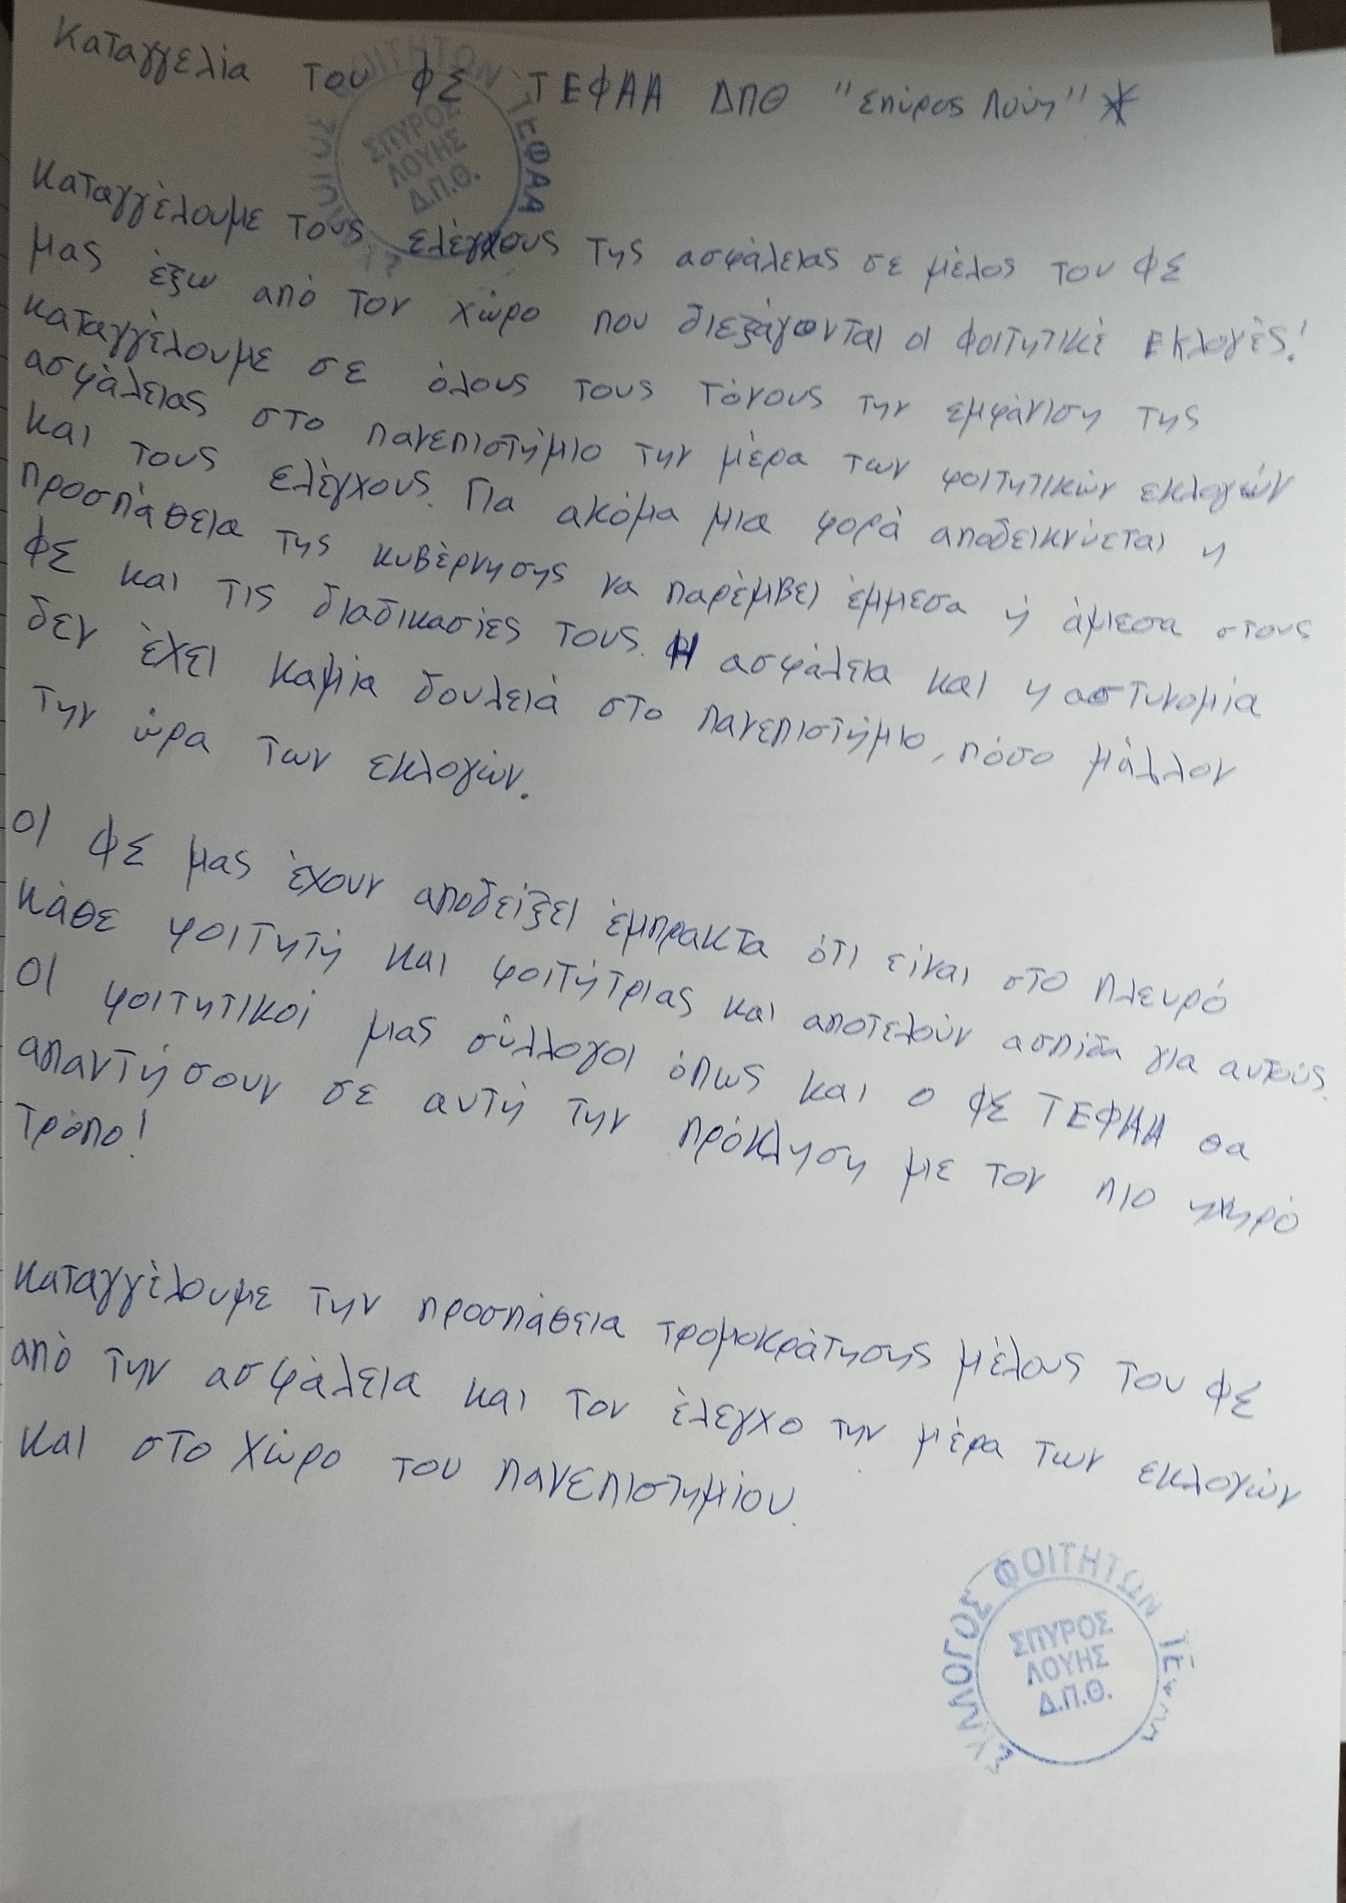 Καταγγελία του ΦΣ ΤΕΦΑΑ ΔΠΘ "Σπύρος Λούη"
ΣΥΛΛΟΓΟΣ ΦΟΙΤΗΤΩΝ ΤΕΦΑΑ
ΣΠΥΡΟΣ
ΛΟΥΗΣ
Δ.Π.Θ.
Καταγγέλουμε τους ελέγχους της ασφάλειας σε μέλος του ΦΣ
μας έξω από τον χώρο που διεξάγονται οι φοιτητικέ εκλογές!
Καταγγέλουμε σε όλους τους τόνους την εμφάνιση της
ασφάλειας στο πανεπιστήμιο την μέρα των φοιτητικών εκλογών
και τους ελέγχους. Για ακόμα μια φορά αποδεικνύεται η
προσπάθεια της κυβέρνησης να παρέμβει έμμεσα ή άμεσα στους
ΦΣ και τις διαδικασίες τους. Η ασφάλεια και η αστυνομία
δεν έχει καμία δουλειά στο πανεπιστήμιο, πόσο μάλλον
την ώρα των εκλογών.
Οι ΦΣ μας έχουν αποδείξει έμπρακτα ότι είναι στο πλευρό
κάθε φοιτητή και φοιτήτριας και αποτελούν ασπίδα για αυτούς.
Οι φοιτητικοί μας σύλλογοι όπως και ο ΦΣ ΤΕΦΑΑ θα
απαντήσουν σε αυτή την πρόκληση με τον πιο ηχηρό
τρόπο!
Καταγγέλουμε την προσπάθεια τρομοκράτησης μέλους του ΦΣ
από την ασφάλεια και τον έλεγχο την μέρα των εκλογών
και στο χώρο του πανεπιστημίου.
ΣΥΛΛΟΓΟΣ ΦΟΙΤΗΤΩΝ ΤΕΦΑΑ
ΣΠΥΡΟΣ
ΛΟΥΗΣ
Δ.Π.Θ.